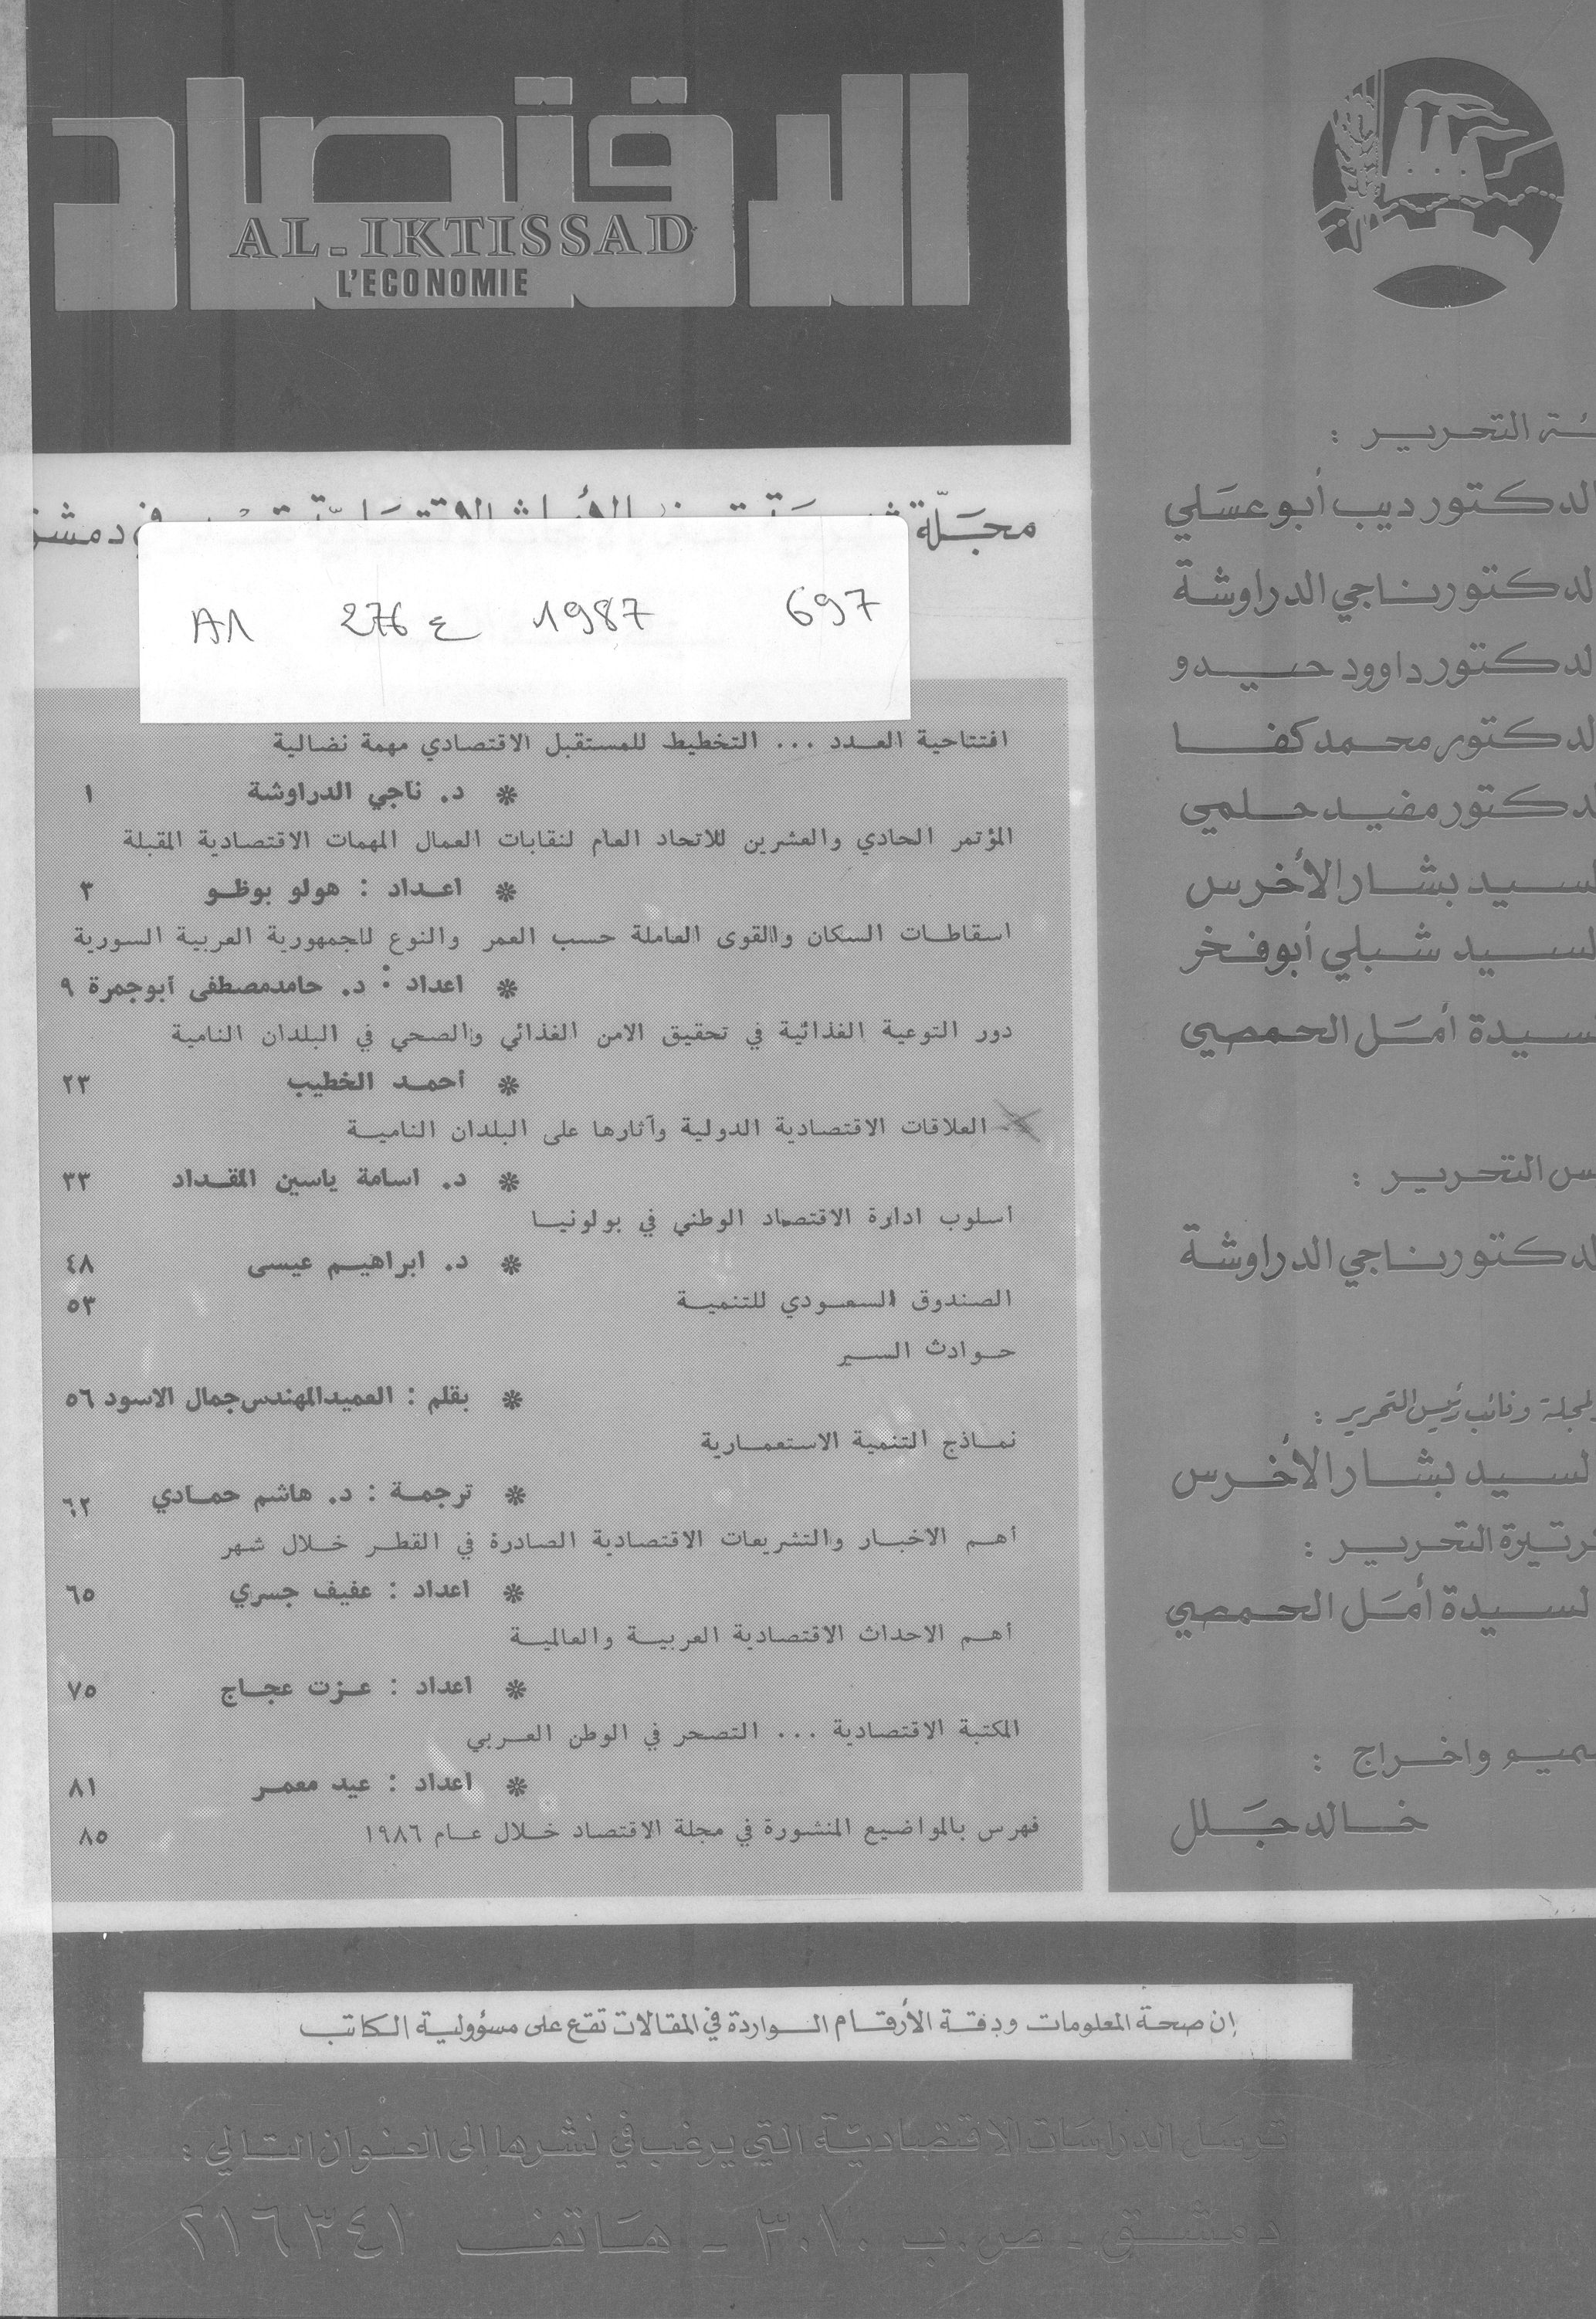 الاقتصاد
AL-IKTISSAD
L'ECONOMIE
مجَلّة
A1 276 ع 1987 697
افتتاحية العـدد ... التخطيط للمستقبل الاقتصادي مهمة نضالية
* د. ناجي الدراوشة ١
المؤتمر الحادي والعشرين للاتحاد العام لنقابات العمال المهمات الاقتصادية المقبلة
* اعـداد : هولو بوظـو ٣
اسقاطـات السكان والقوى العاملة حسب العمر والنوع للجمهورية العربية السورية
* اعداد : د. حامدمصطفى أبوجمرة ٩
دور التوعية الغذائية في تحقيق الامن الغذائي والصحي في البلدان النامية
* أحمـد الخطيب ٢٣
العلاقات الاقتصادية الدولية وآثارها على البلدان الناميـة
* د. اسامة ياسين المقـداد ٣٣
أسلوب ادارة الاقتصاد الوطني في بولونيـا
* د. ابراهيـم عيسى ٤٨
الصندوق السعـودي للتنميـة ٥٣
حـوادث السـير
* بقلم : العميدالمهندس جمال الاسود ٥٦
نمـاذج التنمية الاستعمـارية
* ترجمـة : د. هاشم حمـادي ٦٢
أهـم الاخبـار والتشريعات الاقتصادية الصادرة في القطـر خـلال شهر
* اعداد : عفيف جسري ٦٥
أهـم الاحداث الاقتصادية العربيـة والعالميـة
* اعداد : عـزت عجـاج ٧٥
المكتبة الاقتصادية ... التصحر في الوطن العـربي
* اعداد : عيد معمـر ٨١
فهرس بالمواضيع المنشورة في مجلة الاقتصاد خـلال عـام ١٩٨٦ ٨٥
التحـريـر :
الدكتور ديب أبوعسَلي
الدكتور نـاجي الدراوشة
الدكتور داوود حـيـدو
الدكتور محـمـد كفـا
الدكتور مفيـد حـلـمي
السـيـد بشـار الأخرس
السـيـد شـبلي أبوفـخر
السـيـدة أمَـل الحـمصي
التحـريـر :
الدكتور نـاجي الدراوشـة
المجلة ونائب رئيس التحرير :
السـيـد بشـار الأخـرس
التحـريـر :
السـيـدة أمَـل الحـمصي
واخـراج :
خـالد جـَلل
إن صحة المعلومات ودقـة الأرقـام الـواردة في المقالات تقع على مسؤولية الكاتب
ترسَـل الدراسَات الاقتصاديّة التي يرغب في نشرها إلى العنوان التـالي :
دمشـق - ص.ب ٣٠١٠ - هـَاتف ٢١٦٣٤١